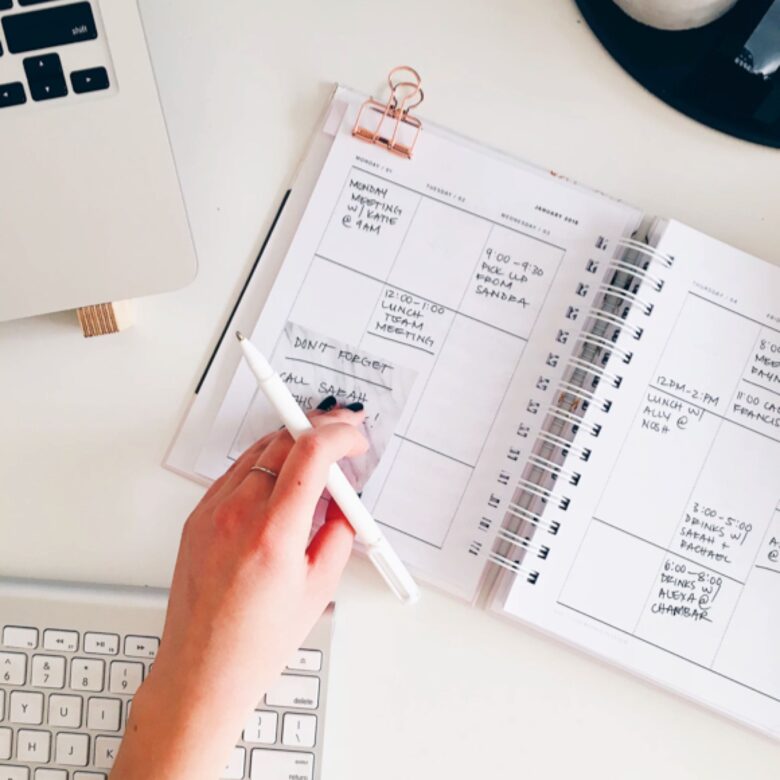 shift
MONDAY / 01
TUESDAY / 02
JANUARY 2018
WEDNESDAY / 03
MONDAY
MEETING
W/ KATIE
@ 9AM
9:00-9:30
PICK UP
FROM
SANDRA
12:00-1:00
LUNCH
TEAM
MEETING
DON'T FORGET
CALL SARAH
!
THURSDAY / 04
8:00
MEET
12PM-2PM
LUNCH W/
ALLY @
NOSH
11:00
FRANCIS
3:00-5:00
DRINKS W/
SARAH +
RACHAEL
6:00-8:00
DRINKS W/
ALEXA @
CHAMBAR
6
&
7
*
8
(
9
Y
U
I
H
J
K
delete
}
]
|
\
enter
return